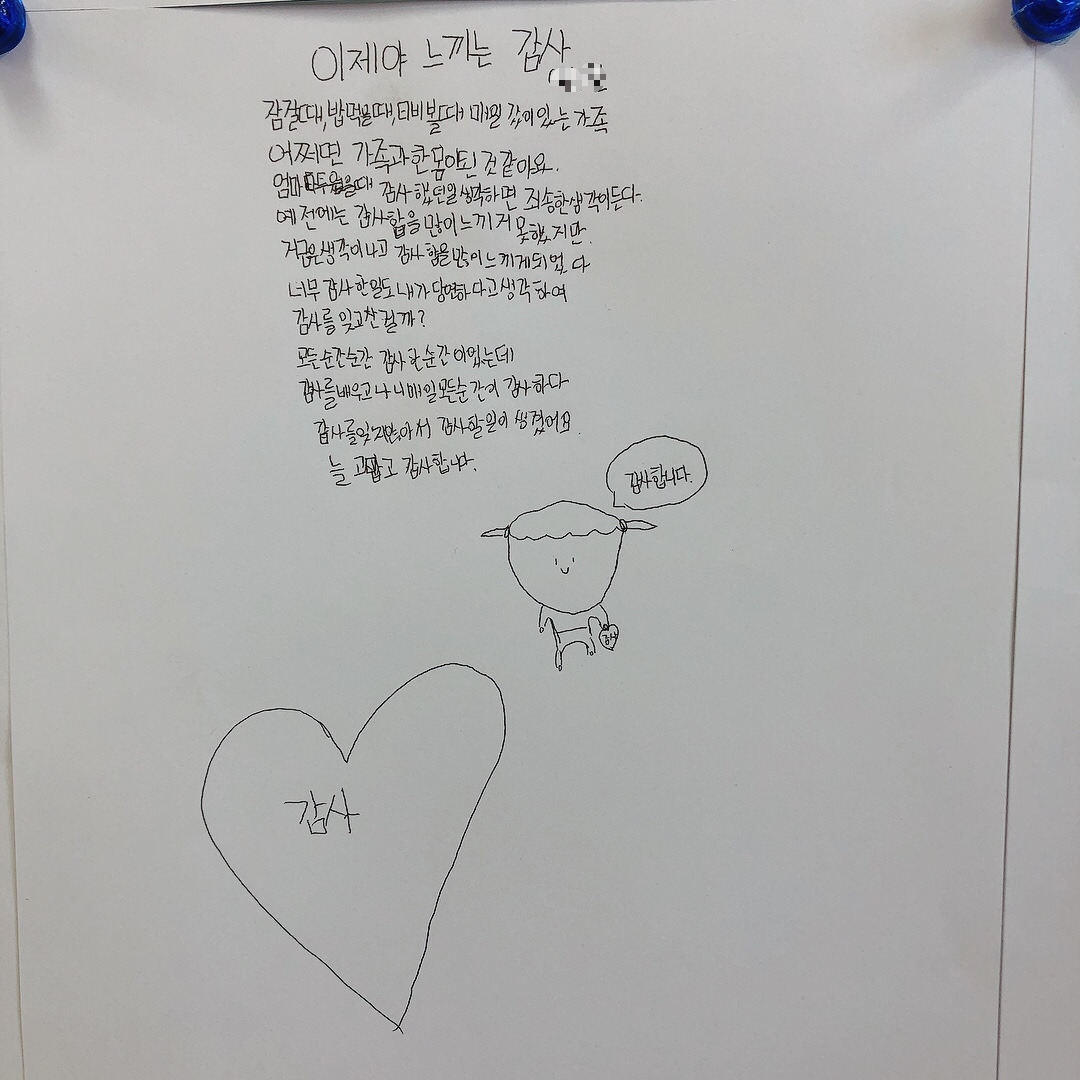 이제야 느끼는 감사
잠잘때,밥먹을때,티비볼때 매일 같이있는 가족
어쩌면 가족과 한몸이된 것 같아요.
감사했던일 생각하면 죄송한생각이든다.
예전에는 감사함을 많이느끼거 못했지만.
지금은생각이나고 감사함을 많이느끼게되었다
너무 감사한일도 내가 당연하다고생각하여
감사를 잊고산걸까?
모든순간순간 감사한순간이있는데
감사를배우고나니매일모든순간이 감사하다
감사를잊지않아서 감사할일이 생겼어요.
늘 고맙고 감사합니다.
감사합니다.
감사
감사